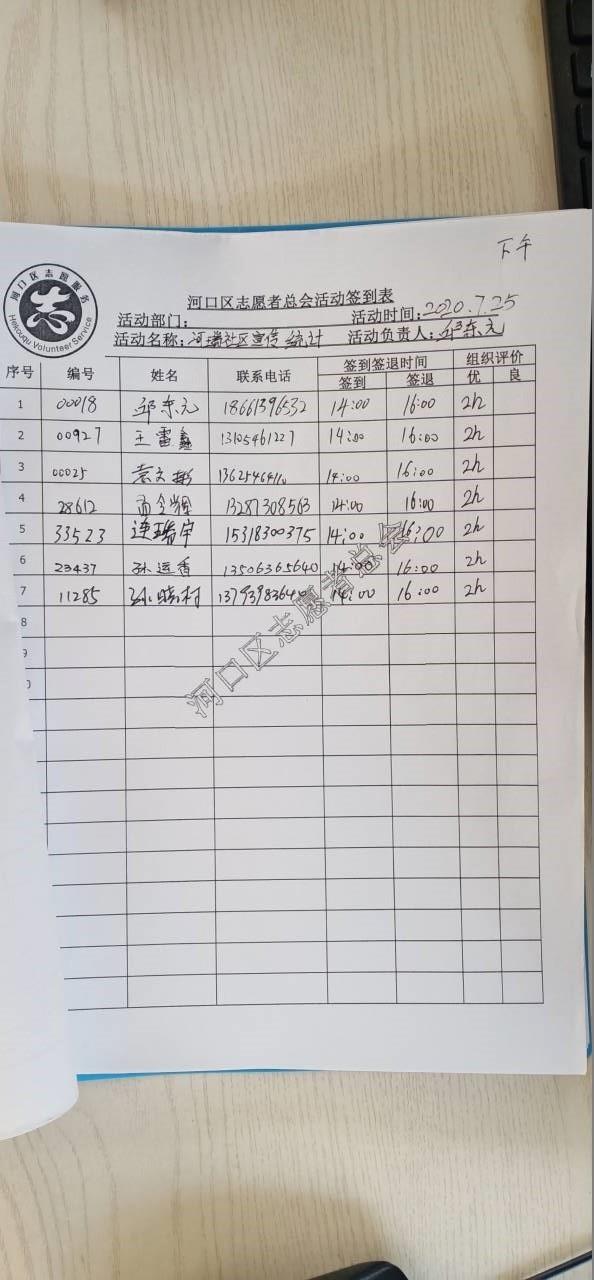 下午
河口区志愿服务
Hekouqu Volunteer Service
河口区志愿者总会活动签到表
活动部门： 活动时间：2020.7.25
活动名称：河瑞社区宣传统计 活动负责人：邱东元
序号 编号 姓名 联系电话 签到签退时间 组织评价
签到 签退 优 良
1 00018 邱东元 18661396532 14:00 16:00 2h
2 00927 王雷鑫 13105461227 14:00 16:00 2h
3 00025 袁文彬 14:00 16:00 2h
4 28612 13287308563 14:00 16:00 2h
5 33523 连瑞宇 15318300375 14:00 16:00 2h
6 23437 孙运香 13506365640 14:00 16:00 2h
7 11285 孙晓村 14:00 16:00 2h
8
9
0
河口区志愿者总会